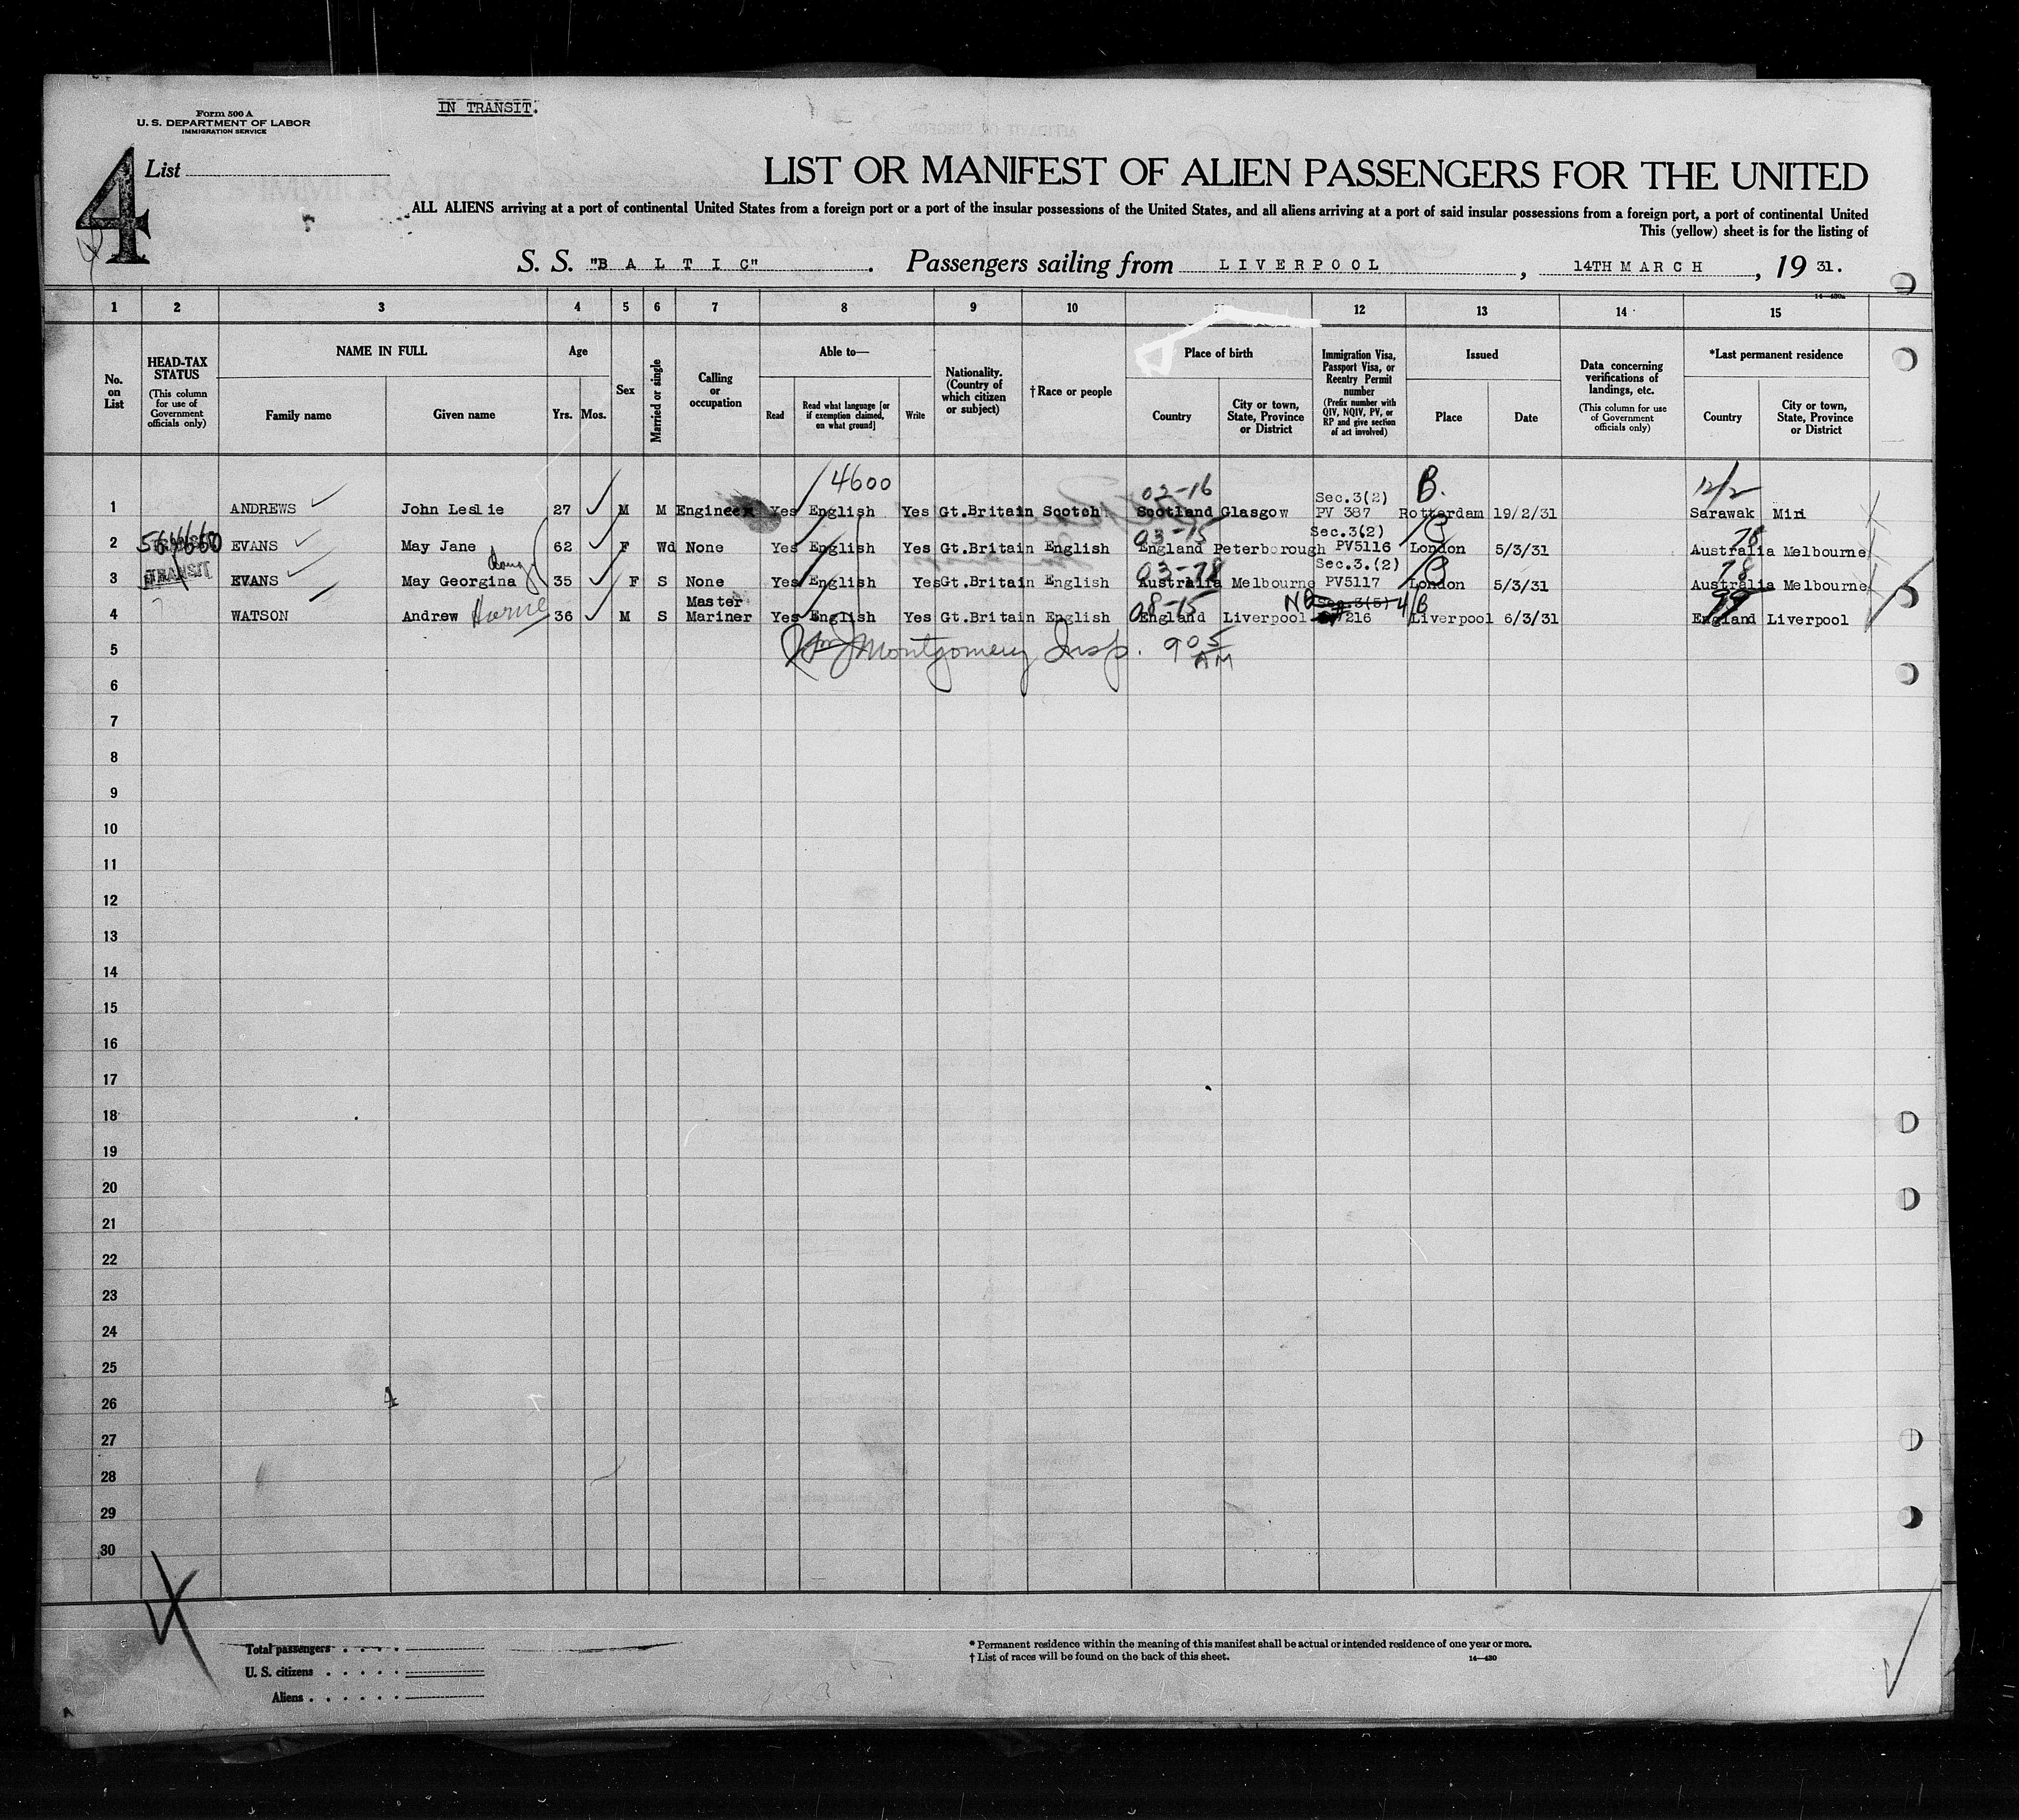 IN TRANSIT.
Form 500 A
U. S. DEPARTMENT OF LABOR
IMMIGRATION SERVICE
4 List
LIST OR MANIFEST OF ALIEN PASSENGERS FOR THE UNITED
ALL ALIENS arriving at a port of continental United States from a foreign port or a port of the insular possessions of the United States, and all aliens arriving at a port of said insular possessions from a foreign port, a port of continental United
This (yellow) sheet is for the listing of
S. S. "BALTIC". Passengers sailing from LIVERPOOL, 14TH MARCH, 19 31.
14—430a
1 2 3 4 5 6 7 8 9 10 12 13 14 15
No. on List
HEAD-TAX STATUS
(This column for use of Government officials only)
NAME IN FULL
Family name
Given name
Age
Yrs. Mos.
Sex
Married or single
Calling or occupation
Able to—
Read
Read what language [or if exemption claimed, on what ground]
Write
Nationality. (Country of which citizen or subject)
† Race or people
Place of birth
Country
City or town, State, Province or District
Immigration Visa, Passport Visa, or Reentry Permit number
(Prefix number with QIV, NQIV, PV, or RP and give section of act involved)
Issued
Place
Date
Data concerning verifications of landings, etc.
(This column for use of Government officials only)
*Last permanent residence
Country
City or town, State, Province or District
4600 02-16 Sec.3(2) B.
1 ANDREWS John Leslie 27 M M Engineer Yes English Yes Gt.Britain Scotch Scotland Glasgow PV 387 Rotterdam 19/2/31 Sarawak Miri
03-15 Sec.3(2) 78
2 EVANS May Jane 62 F Wd None Yes English Yes Gt.Britain English England Peterborough PV5116 London 5/3/31 Australia Melbourne
03-78 Sec.3.(2) 78
3 TRANSIT EVANS May Georgina 35 F S None Yes English Yes Gt.Britain English Australia Melbourne PV5117 London 5/3/31 Australia Melbourne
Master 08-15 Sec.3(5)
4 WATSON Andrew Horne 36 M S Mariner Yes English Yes Gt.Britain English England Liverpool 7216 Liverpool 6/3/31 England Liverpool
5 Montgomery Insp. 905 AM
6
7
8
9
10
11
12
13
14
15
16
17
18
19
20
21
22
23
24
25
26
27
28
29
30
Total passengers
U. S. citizens
Aliens
* Permanent residence within the meaning of this manifest shall be actual or intended residence of one year or more.
† List of races will be found on the back of this sheet. 14—430